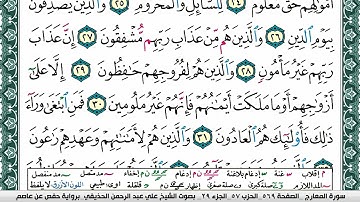 أَمْوَٰلِهِمْ حَقٌّ مَّعْلُومٌ ٢٤ لِّلسَّآئِلِ وَٱلْمَحْرُومِ ٢٥ وَٱلَّذِينَ يُصَدِّقُونَ
بِيَوْمِ ٱلدِّينِ ٢٦ وَٱلَّذِينَ هُم مِّنْ عَذَابِ رَبِّهِم مُّشْفِقُونَ ٢٧ إِنَّ عَذَابَ
رَبِّهِمْ غَيْرُ مَأْمُونٍ ٢٨ وَٱلَّذِينَ هُمْ لِفُرُوجِهِمْ حَٰفِظُونَ ٢٩ إِلَّا عَلَىٰٓ
أَزْوَٰجِهِمْ أَوْ مَا مَلَكَتْ أَيْمَٰنُهُمْ فَإِنَّهُمْ غَيْرُ مَلُومِينَ ٣٠ فَمَنِ ٱبْتَغَىٰ وَرَآءَ
ذَٰلِكَ فَأُو۟لَٰٓئِكَ هُمُ ٱلْعَادُونَ ٣١ وَٱلَّذِينَ هُمْ لِأَمَٰنَٰتِهِمْ وَعَهْدِهِمْ رَٰعُونَ
سورة المعارج الصفحة ٥٦٩ الحزب ٥٧ الجزء ٢٩ بصوت الشيخ علي عبد الرحمن الحذيفي برواية حفص عن عاصم